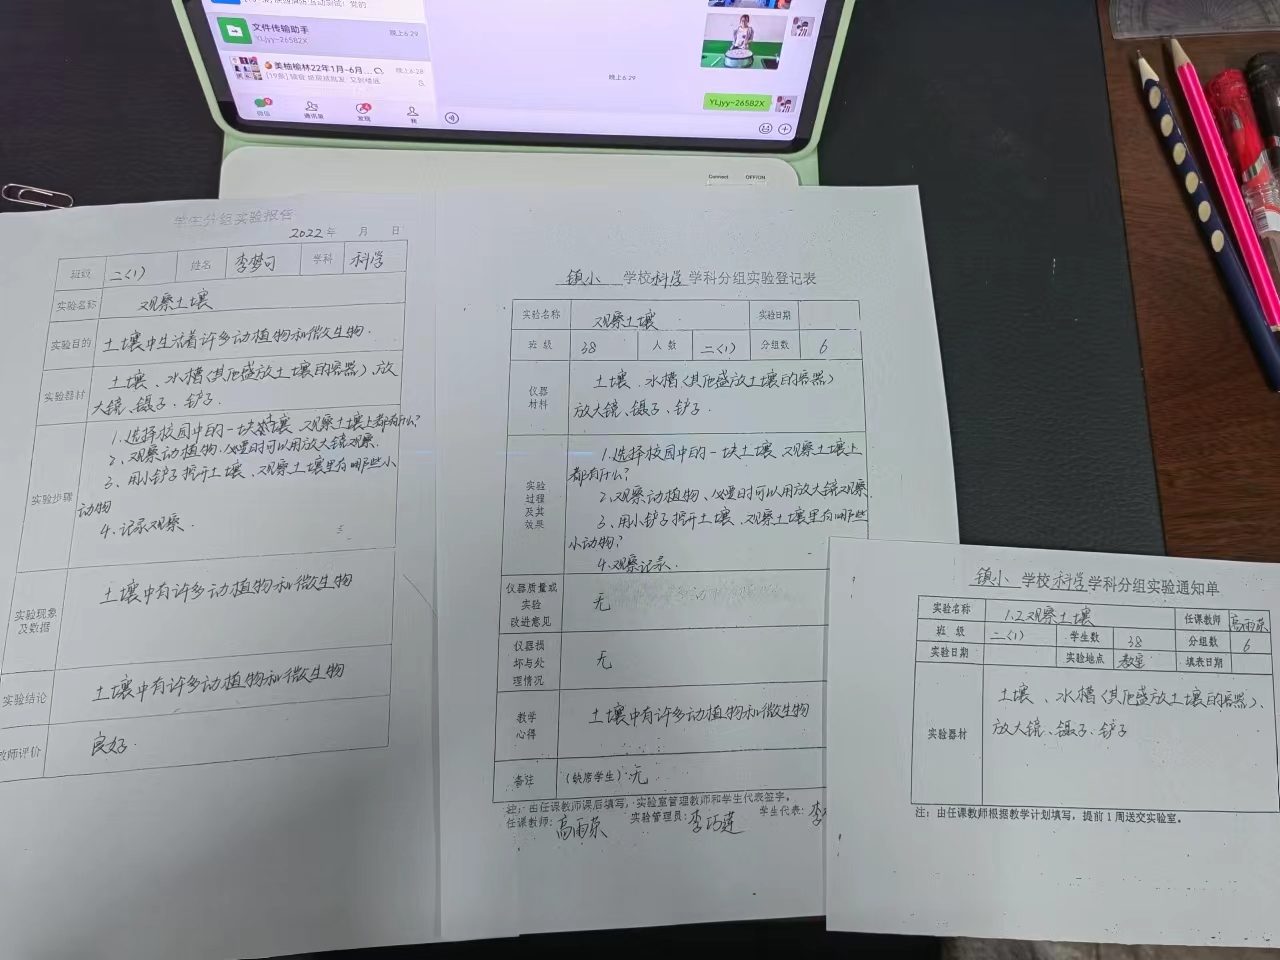 文件传输助手
YLjyy-26582X
晚上6:29
美柚榆林22年1月-6月...
晚上6:28
微信
通讯录
发现
我
晚上6:29
YLjyy-26582X
Connect OFF/ON
学生分组实验报告
2022年 月 日
班级 二(1) 姓名 李梦可 学科 科学
实验名称 观察土壤
实验目的 土壤中生活着许多动植物和微生物.
实验器材 土壤、水槽(其他盛放土壤的容器)、放
大镜、镊子、铲子.
实验步骤
1.选择校园中的一块土壤、观察土壤上都有什么?
2、观察动植物、必要时可以用放大镜观察.
3、用小铲子挖开土壤、观察土壤里有哪些小
动物
4、记录观察.
实验现象
及数据
土壤中有许多动植物和微生物
实验结论 土壤中有许多动植物和微生物
教师评价 良好.
镇小 学校科学学科分组实验登记表
实验名称 观察土壤 实验日期
班 级 38 人 数 二(1) 分组数 6
仪器
材料
土壤、水槽(其他盛放土壤的容器)
放大镜、镊子、铲子.
实验
过程
及其
效果
1.选择校园中的一块土壤、观察土壤上
都有什么?
2、观察动植物、必要时可以用放大镜观察.
3、用小铲子挖开土壤、观察土壤里有哪些
小动物?
4.观察记录.
仪器质量或
实验
改进意见
无
仪器损
坏与处
理情况
无
教学
心得
土壤中有许多动植物和微生物
备注 (缺席学生):无
注:由任课教师课后填写,实验室管理教师和学生代表签字。
任课教师:高雨荣 实验管理员:李巧莲 学生代表:李
镇小 学校科学学科分组实验通知单
实验名称 1.2观察土壤 任课教师 高雨荣
班 级 二(1) 学生数 38 分组数 6
实验日期 实验地点 教室 填表日期
实验器材
土壤、水槽(其他盛放土壤的容器)、
放大镜、镊子、铲子
注:由任课教师根据教学计划填写,提前1周送交实验室。